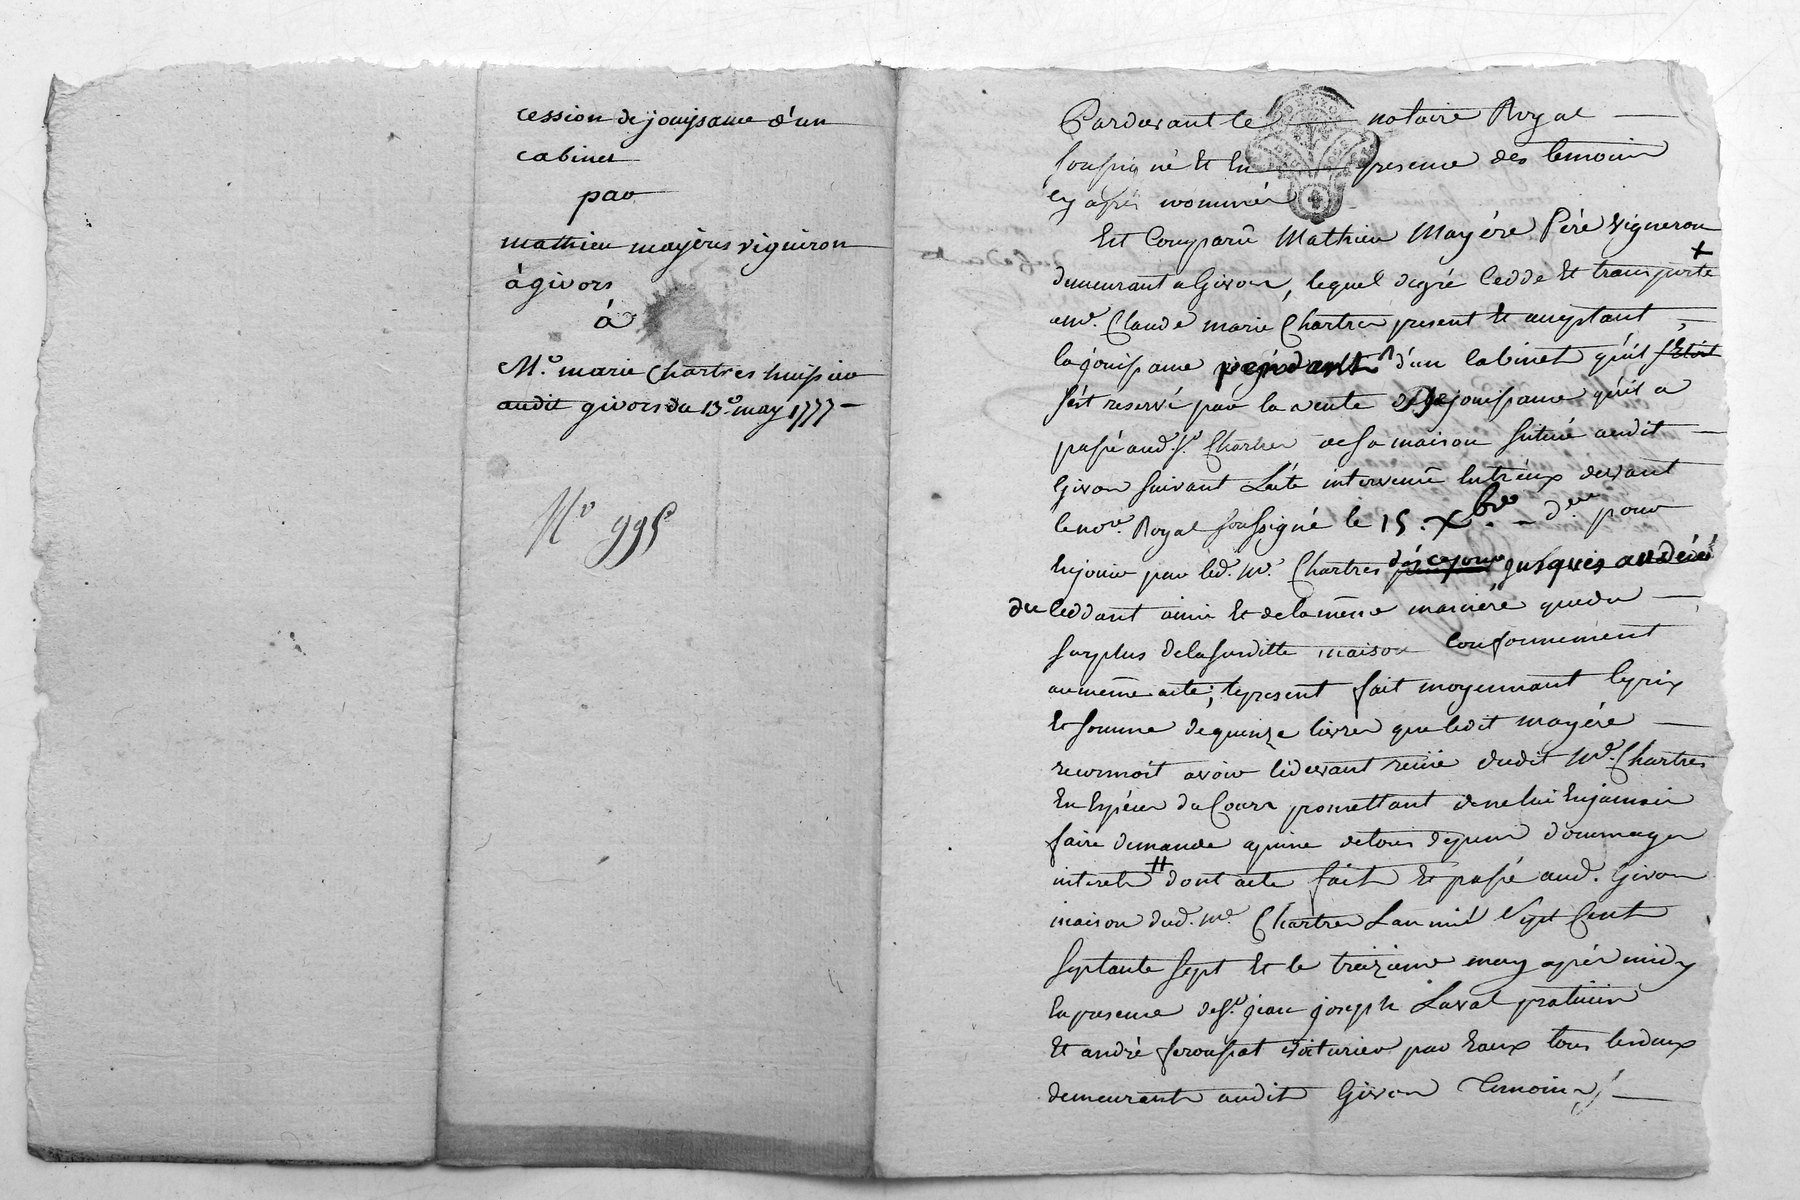 cession de jouissance d'un
cabinet
par
mathieu mayères vigneron
à givors
à
Me. marie Chartres huissier
audit givors du 13e. may 1777 —
No 995
Pardevant le notaire Royal
soussigné et en presence des temoins
cy après nommés
Est Comparû Mathieu Mayére Pére vigneron
demeurant a Givors, lequel degré Cedde et transporte
a me. Claude marie Chartres present et acceptant
la jouissance d'un Cabinet qu'il
s'est reservé par la vente de jouissance qu'il a
passé aud. sr. Chartres de sa maison située audit
Givors suivant L'acte intervenû Entreux devant
le nore Royal soussigné le 15. Xbre. - der pour
En jouir par led. me. Chartres dés ce jour jusques au décés
du Ceddant ainsi et de la même maniére que du
surplus de la susditte maison Conformement
au même acte; le present fait moyennant le prix
et somme de quinze livres que ledit mayére
reconnoit avoir cidevant reçüe dudit Me. Chartres
En Espéces du Cours promettant de ne lui En jamais
faire demande a peine de tous depens dommages
interets dont acte fait et passé aud. Givors
maison dud. me. Chartres L'an mil Sept Cent
septante sept et le treizieme may après midy
En presence de sr. jean joseph Laval praticien
et andré voiturier par Eaux tous les deux
demeurants audit Givors Temoins